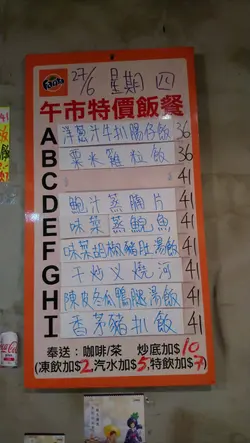 Fanta
27/6 星期四
午市特價飯餐
A 洋蔥汁牛扒腸仔飯 36
B 粟米雞粒飯 36
C 41
D 鮑汁蒸腩片 41
E 味菜蒸鯇魚 41
F 味菜胡椒豬肚湯飯 41
G 干炒叉燒河 41
H 陳皮冬瓜鴨腿湯飯 41
I 香茅豬扒飯 41
奉送：咖啡/茶 炒底加$10
(凍飲加$2,汽水加$5,特飲加$7)